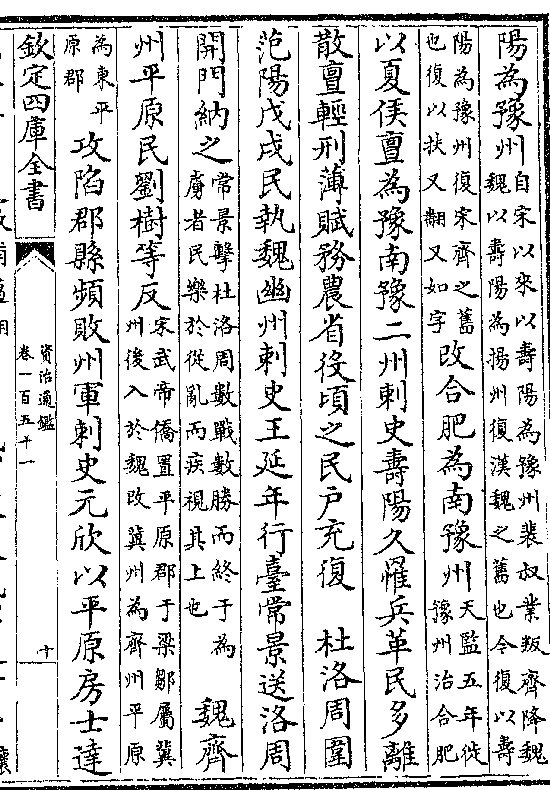 陽為豫州自宋以來以壽陽為豫州裴叔業叛齊降魏魏以壽陽為揚州復漢魏之舊也今復以壽
陽為豫州復宋齊之舊也復以扶又翻又如字改合肥為南豫州天監五年徙豫州治合肥
以夏侯亶為豫南豫二州刺史壽陽久罹兵革民多離
散亶輕刑薄賦務農省役頃之民戶充復　杜洛周圍
范陽戊戌民執魏幽州刺史王延年行臺常景送洛周
開門納之常景擊杜洛周數戰數勝而終于為虜者民樂於從亂而疾視其上也　魏齊
州平原民劉樹等反宋武帝僑置平原郡于梁鄒屬冀州後入於魏改冀州為齊州平原
為東平原郡攻陷郡縣頻敗州軍刺史元欣以平原房士達
欽定四庫全書
資治通鑑
卷一百五十一
十